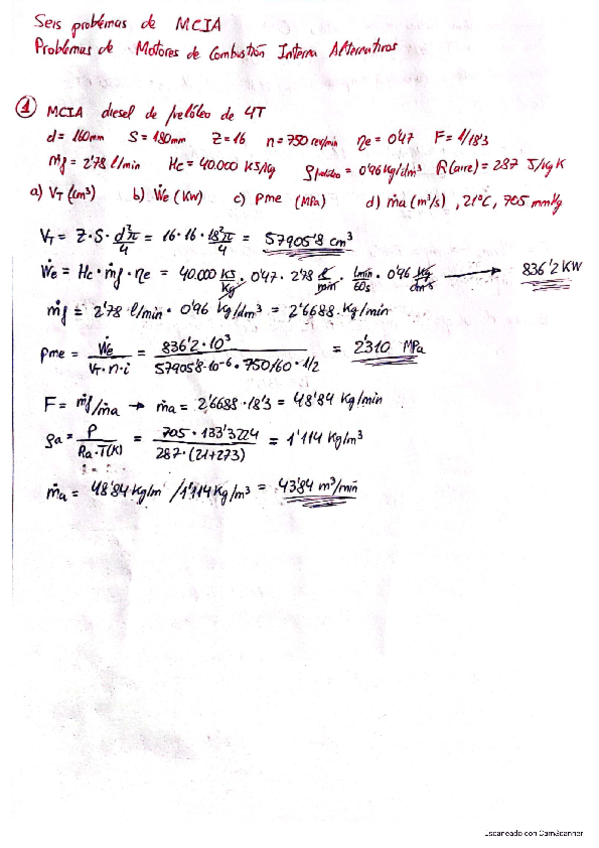 Seis problemas de MCIA
Problemas de Motores de Combustión Interna Alternativos
① MCIA diesel de petróleo de 4T
d = 160mm S = 180mm Z = 16 n = 750 rev/min ηe = 0'47 F = 1/18'3
ṁf = 2'78 l/min Hc = 40.000 KJ/Kg ρpetróleo = 0'96 Kg/dm³ R(aire) = 287 J/Kg K
a) VT (cm³) b) Ẇe (KW) c) pme (MPa) d) ṁa (m³/s), 21ºC, 705 mmHg
VT = Z · S · d²π/4 = 16 · 16 · 18²π/4 = 57905'8 cm³
Ẇe = Hc · ṁf · ηe = 40.000 KJ/Kg · 0'47 · 2'78 l/min · 1min/60s · 0'96 Kg/dm³ → 836'2 KW
ṁf = 2'78 l/min · 0'96 Kg/dm³ = 2'6688 Kg/min
pme = Ẇe / VT · n · i = 836'2 · 10³ / 57905'8 · 10⁻⁶ · 750/60 · 1/2 = 2'310 MPa
F = ṁf/ṁa → ṁa = 2'6688 · 18'3 = 48'84 Kg/min
ρa = P / Ra · T(K) = 705 · 133'3224 / 287 · (21+273) = 1'114 Kg/m³
ṁa = 48'84 Kg/m / 1'114 Kg/m³ = 43'84 m³/min
Escaneado con CamScanner